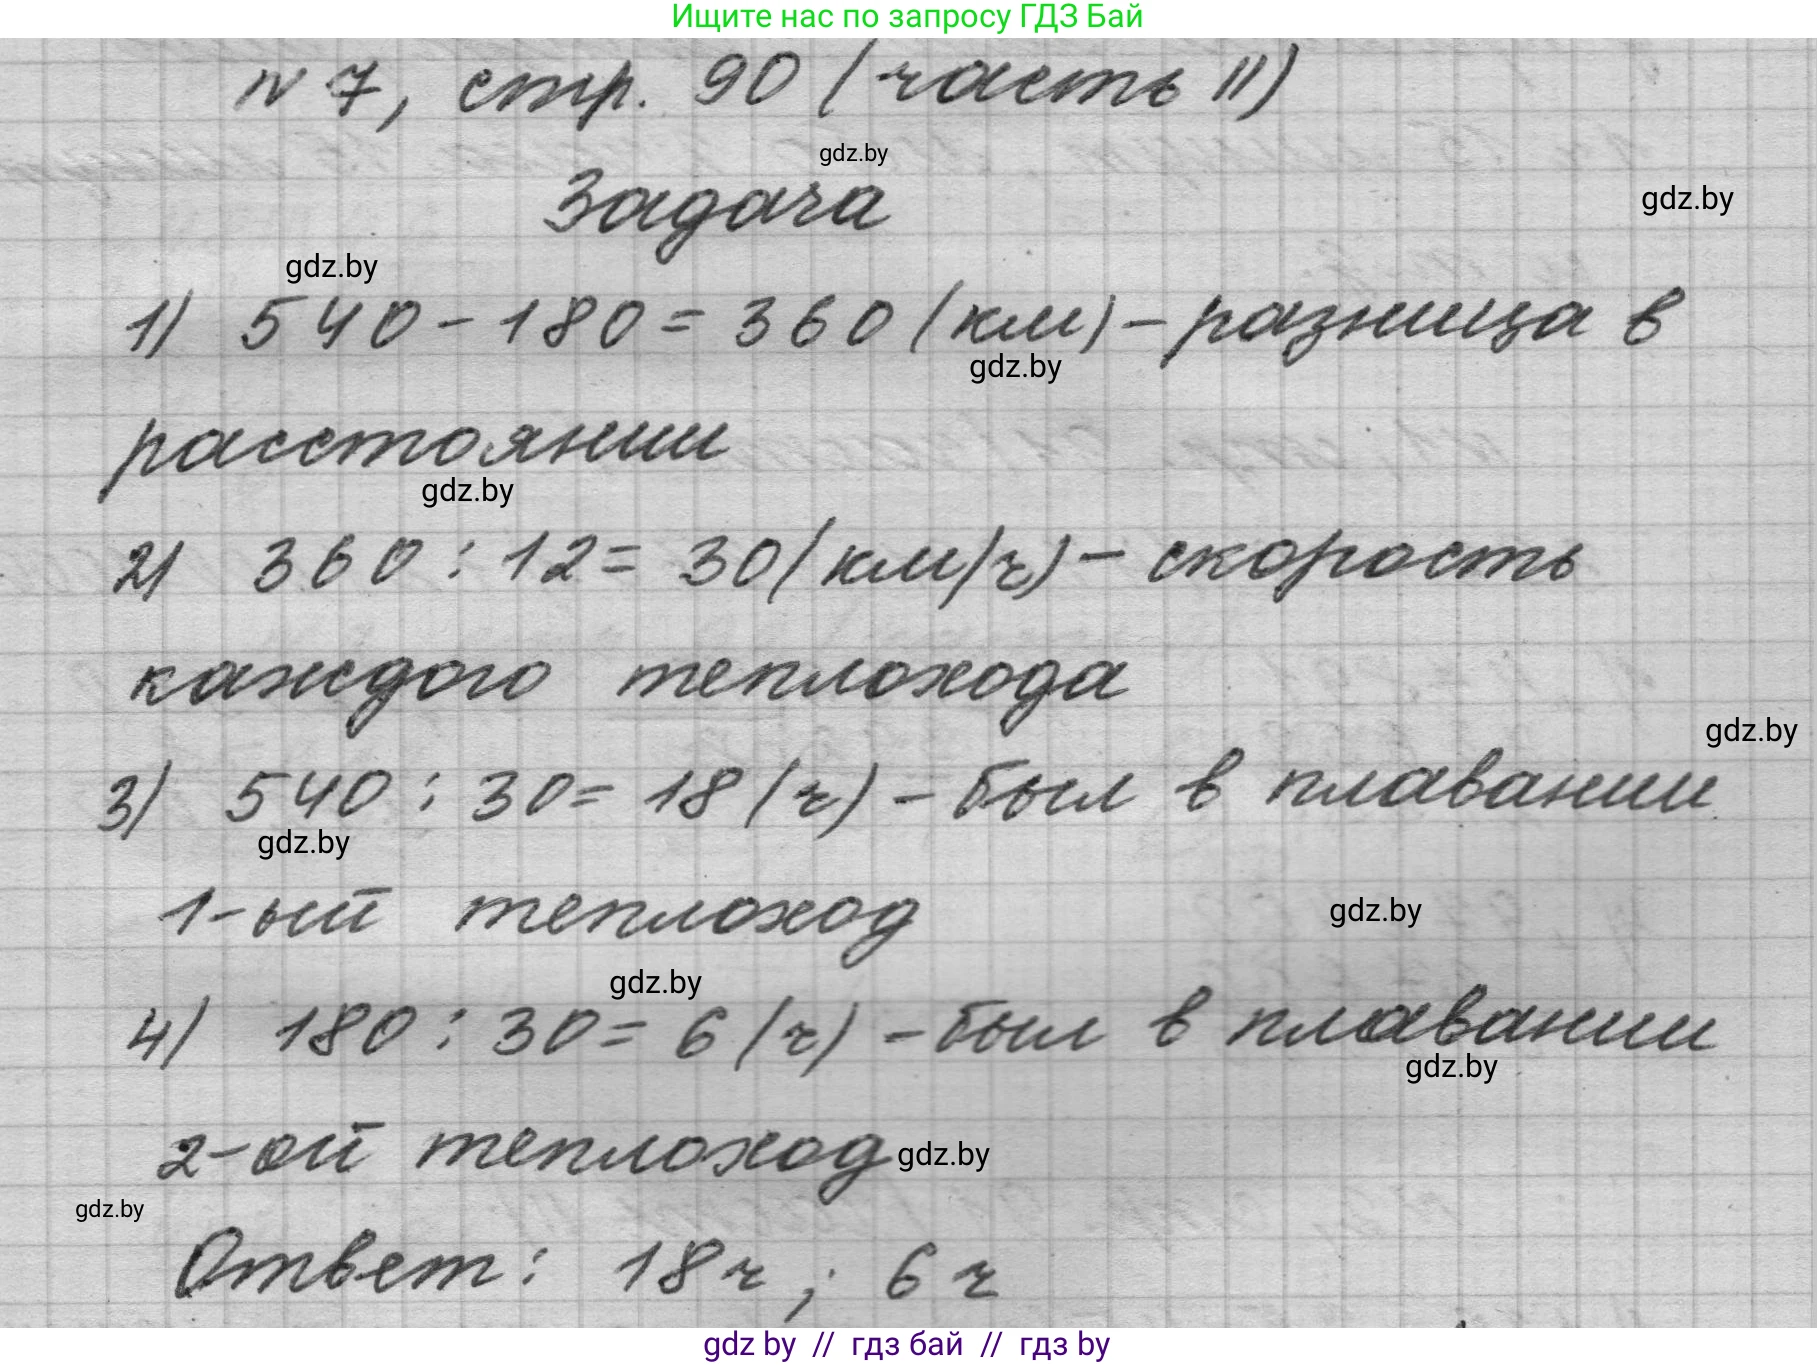 Ищите нас по запросу ГДЗ Бай
№ 7, стр. 90 (часть II)
gdz.by
Задача
gdz.by
gdz.by
1) 540 - 180 = 360 (км) - разница в
gdz.by
расстоянии
gdz.by
2) 360 : 12 = 30 (км/ч) - скорость
каждого теплохода
gdz.by
3) 540 : 30 = 18 (ч) - был в плавании
gdz.by
1-ый теплоход
gdz.by
gdz.by
4) 180 : 30 = 6 (ч) - был в плавании
gdz.by
2-ой теплоход
gdz.by
gdz.by
Ответ: 18 ч ; 6 ч
gdz by // гдз бай // гдз by